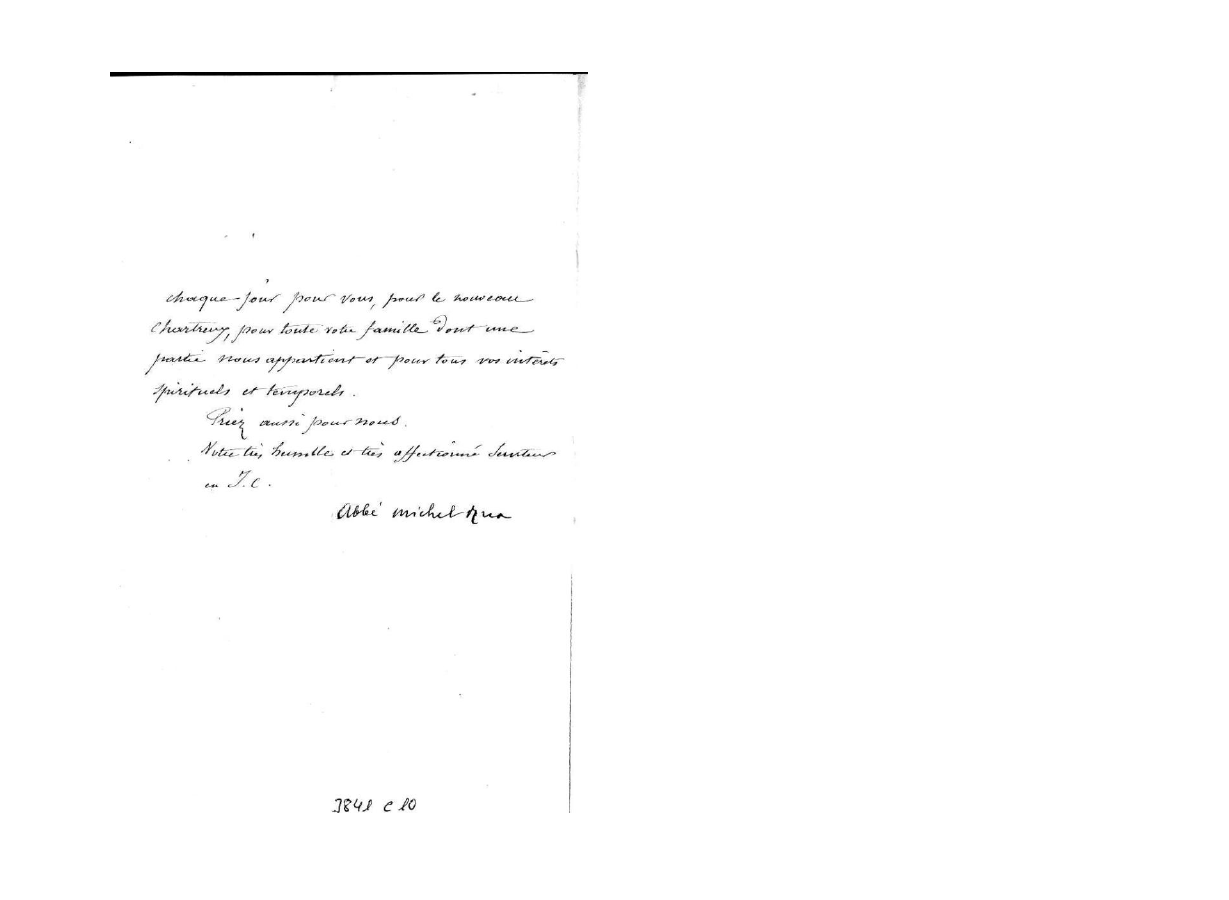 chaque-jour pour vous, pour le nouveau
Chartreux, pour toute votre famille dont une
partie nous appartient et pour tous vos intérêts
spirituels et temporels.
Priez aussi pour nous.
Votre très humble et très affectionné Serviteur
en J.C.
Abbé Michel Rua
3841 C 10